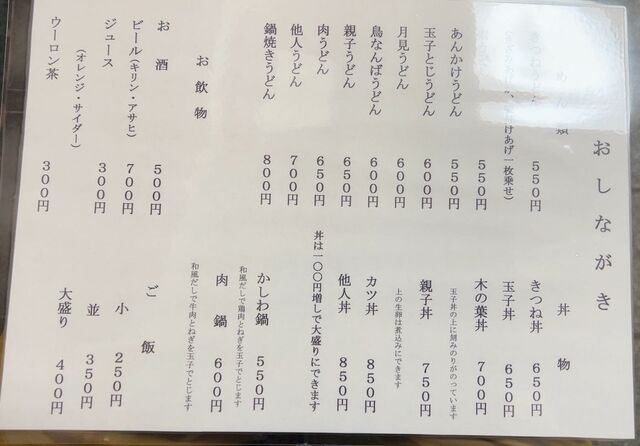 おしながき
めん類
きつねうどん 550円
けあげ一枚乗せ)
550円
あんかけうどん 550円
玉子とじうどん 600円
月見うどん 600円
鳥なんばうどん 600円
親子うどん 650円
肉うどん 650円
他人うどん 700円
鍋焼きうどん 800円
お飲物
お酒 500円
ビール(キリン・アサヒ) 700円
ジュース 300円
(オレンジ・サイダー)
ウーロン茶 300円
丼物
きつね丼 650円
玉子丼 650円
木の葉丼 700円
玉子丼の上に刻みのりがのっています
親子丼 750円
上の生卵は煮込みにできます
カツ丼 850円
他人丼 850円
丼は一〇〇円増しで大盛りにできます
かしわ鍋 550円
和風だしで鶏肉とねぎを玉子でとじます
肉鍋 600円
和風だしで牛肉とねぎを玉子でとじます
ご飯
小 250円
並 350円
大盛り 400円